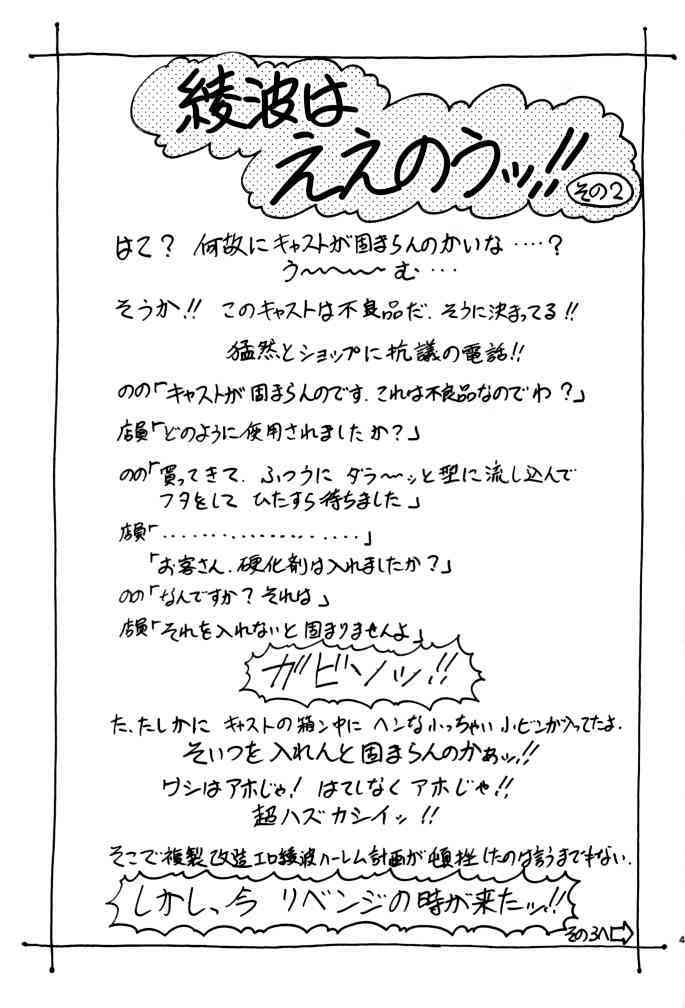 綾波は
ええのうッ!!
その2
はて? 何故にキャストが固まらんのかいな‥‥?
う〜〜〜〜む‥‥
そうか!! このキャストは不良品だ.そうに決まってる!!
猛然とショップに抗議の電話!!
のの「キャストが固まらんのです.これは不良品なのでわ?」
店員「どのように使用されましたか?」
のの「買ってきて.ふつうに ダラ〜ッと型に流し込んで
フタをして ひたすら待ちました」
店員「‥‥‥‥‥‥‥‥‥」
「お客さん.硬化剤は入れましたか?」
のの「なんですか?それは」
店員「それを入れないと固まりませんよ」
ガビンッ!!
た、たしかに キャストの箱ン中に ヘンな小っちゃい小ビンが入ってたよ.
そいつを入れんと固まらんのかぁッ!!
ワシはアホじゃ! はてしなくアホじゃ!!
超ハズカシイッ!!
そこで複製改造エロ綾波ハーレム計画が頓挫したのは言うまでもない.
しかしっ、今 リベンジの時が来たッ!!
その3へ
4